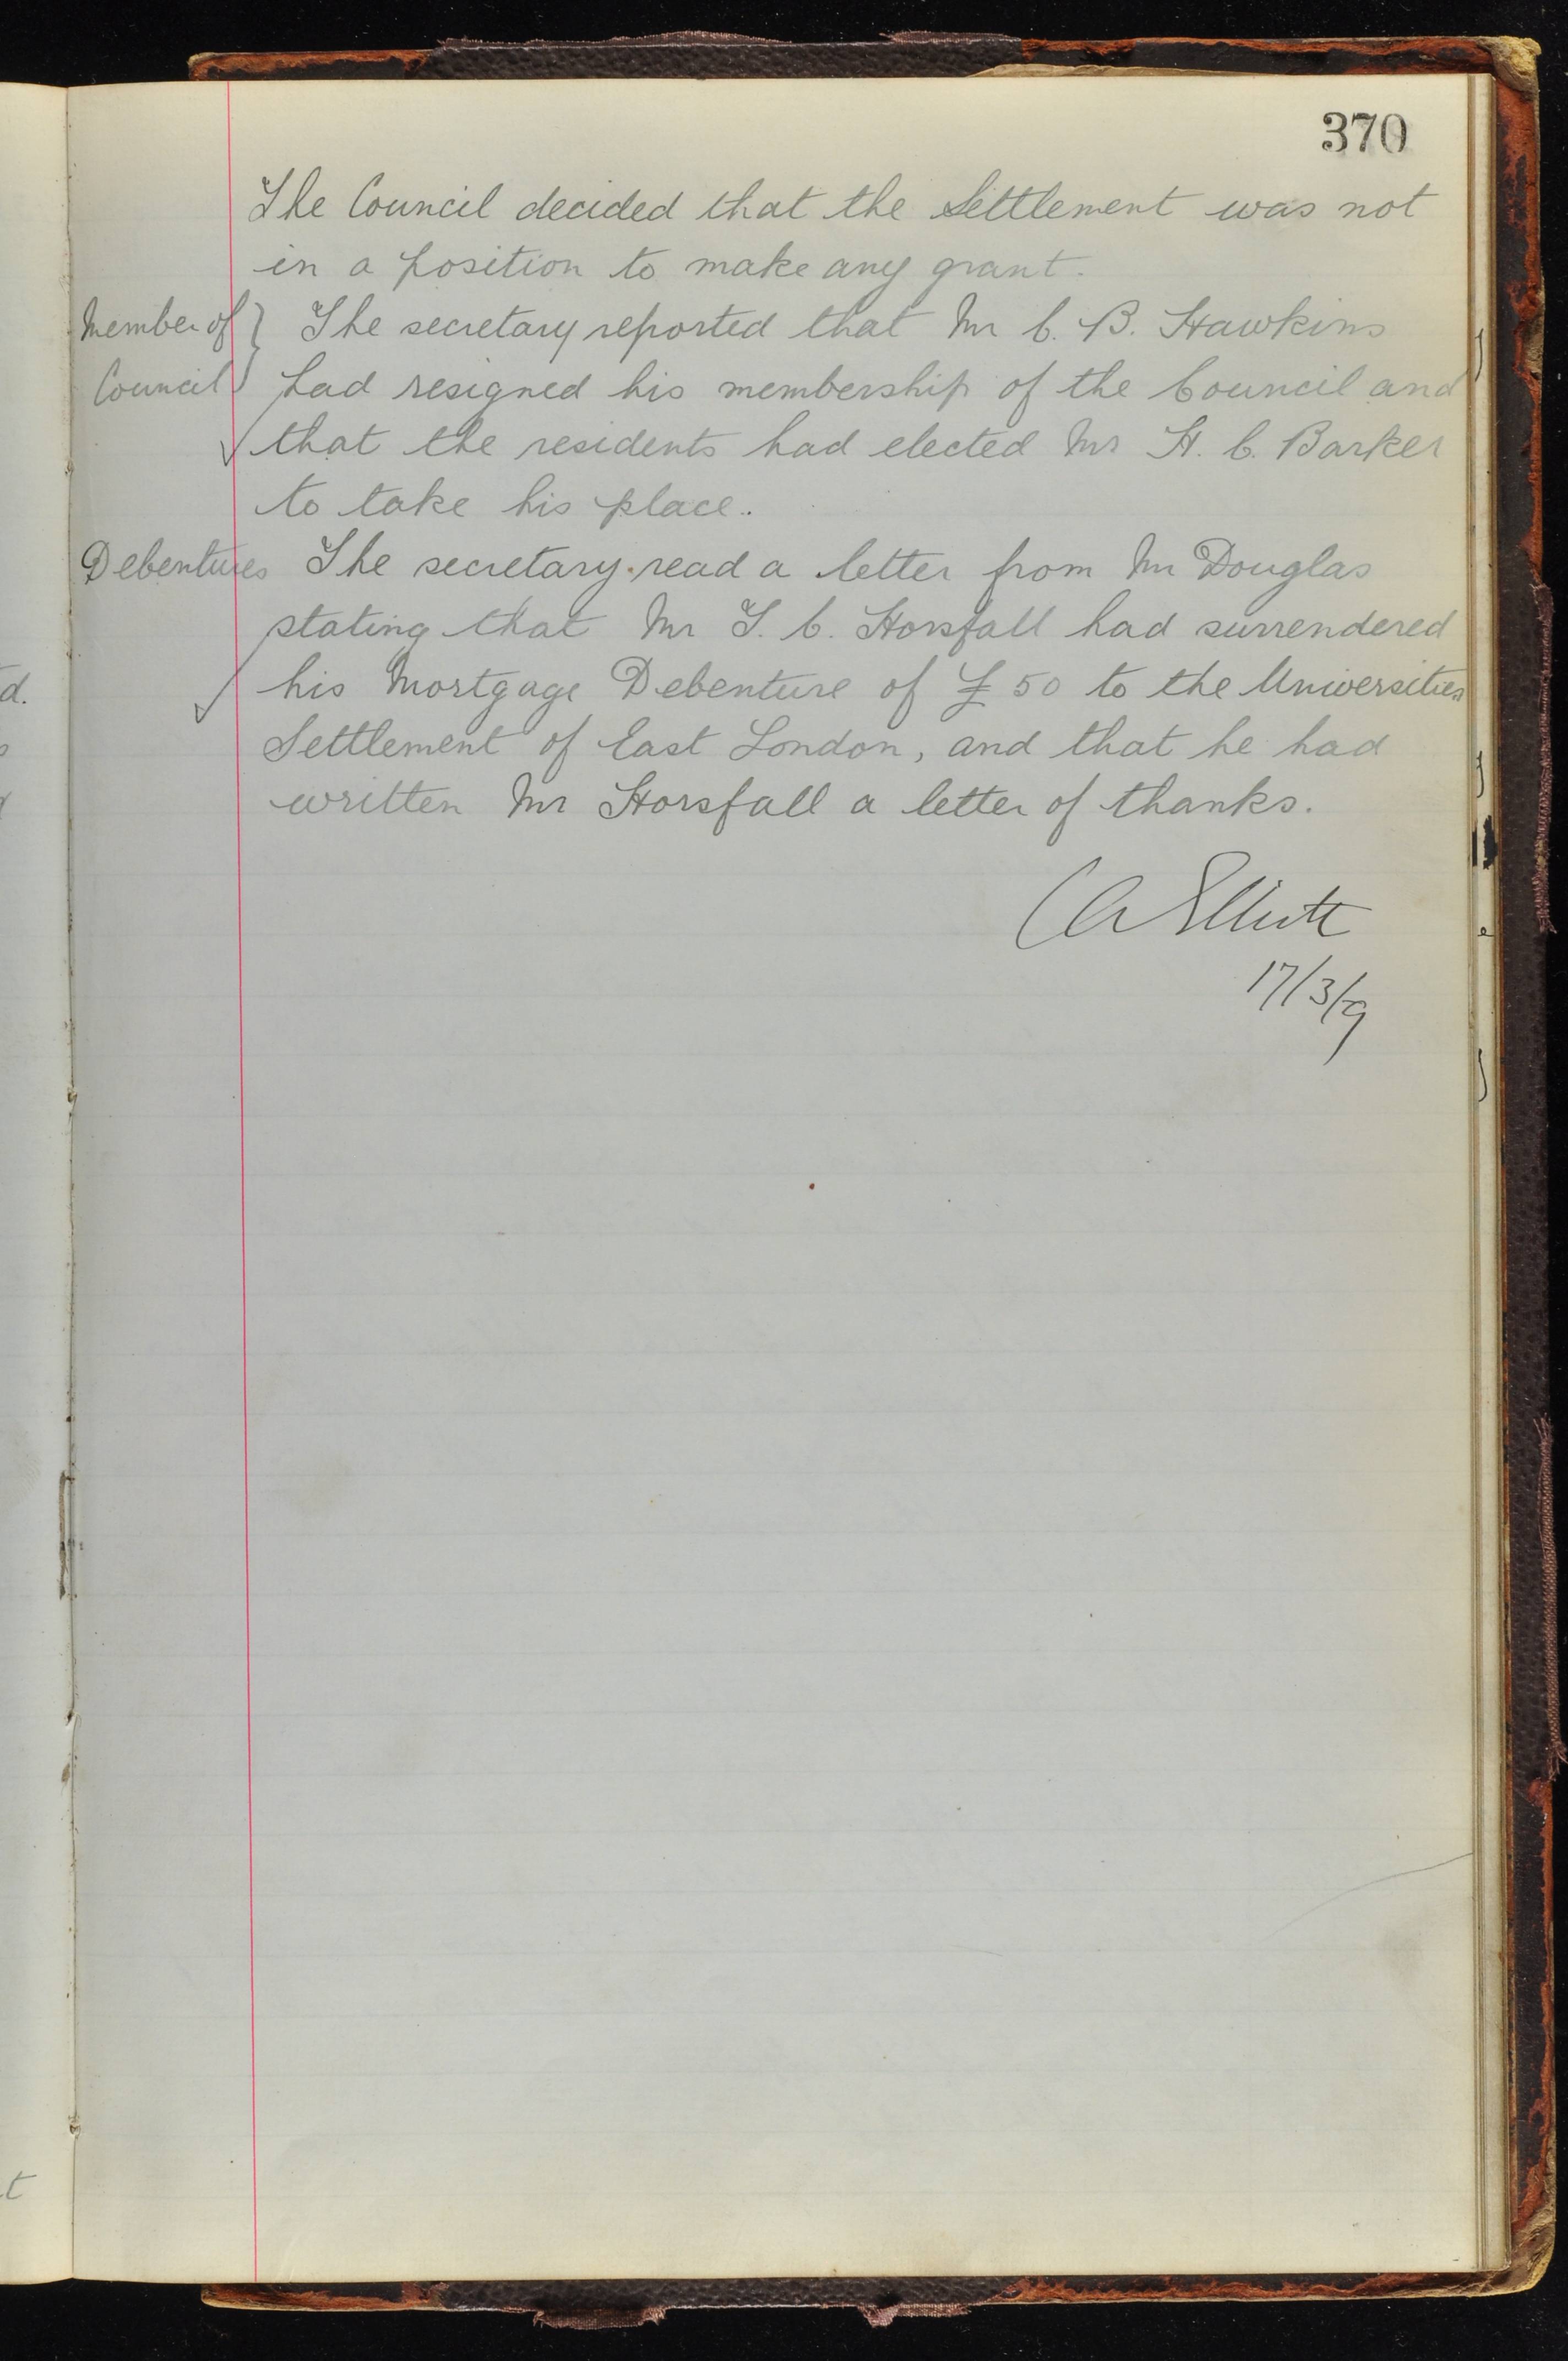 370
The Council decided that the Settlement was not
in a position to make any grant.
Member of } The secretary reported that Mr C. B. Hawkins
Council } had resigned his membership of the Council and
✓ that the residents had elected Mr H. C. Barker
to take his place.
Debentures The secretary read a letter from Mr Douglas
stating that Mr T. C. Horsfall had surrendered
✓ his Mortgage Debenture of £50 to the Universities
Settlement of East London, and that he had
written Mr Horsfall a letter of thanks.
CA Elliott
17/3/9